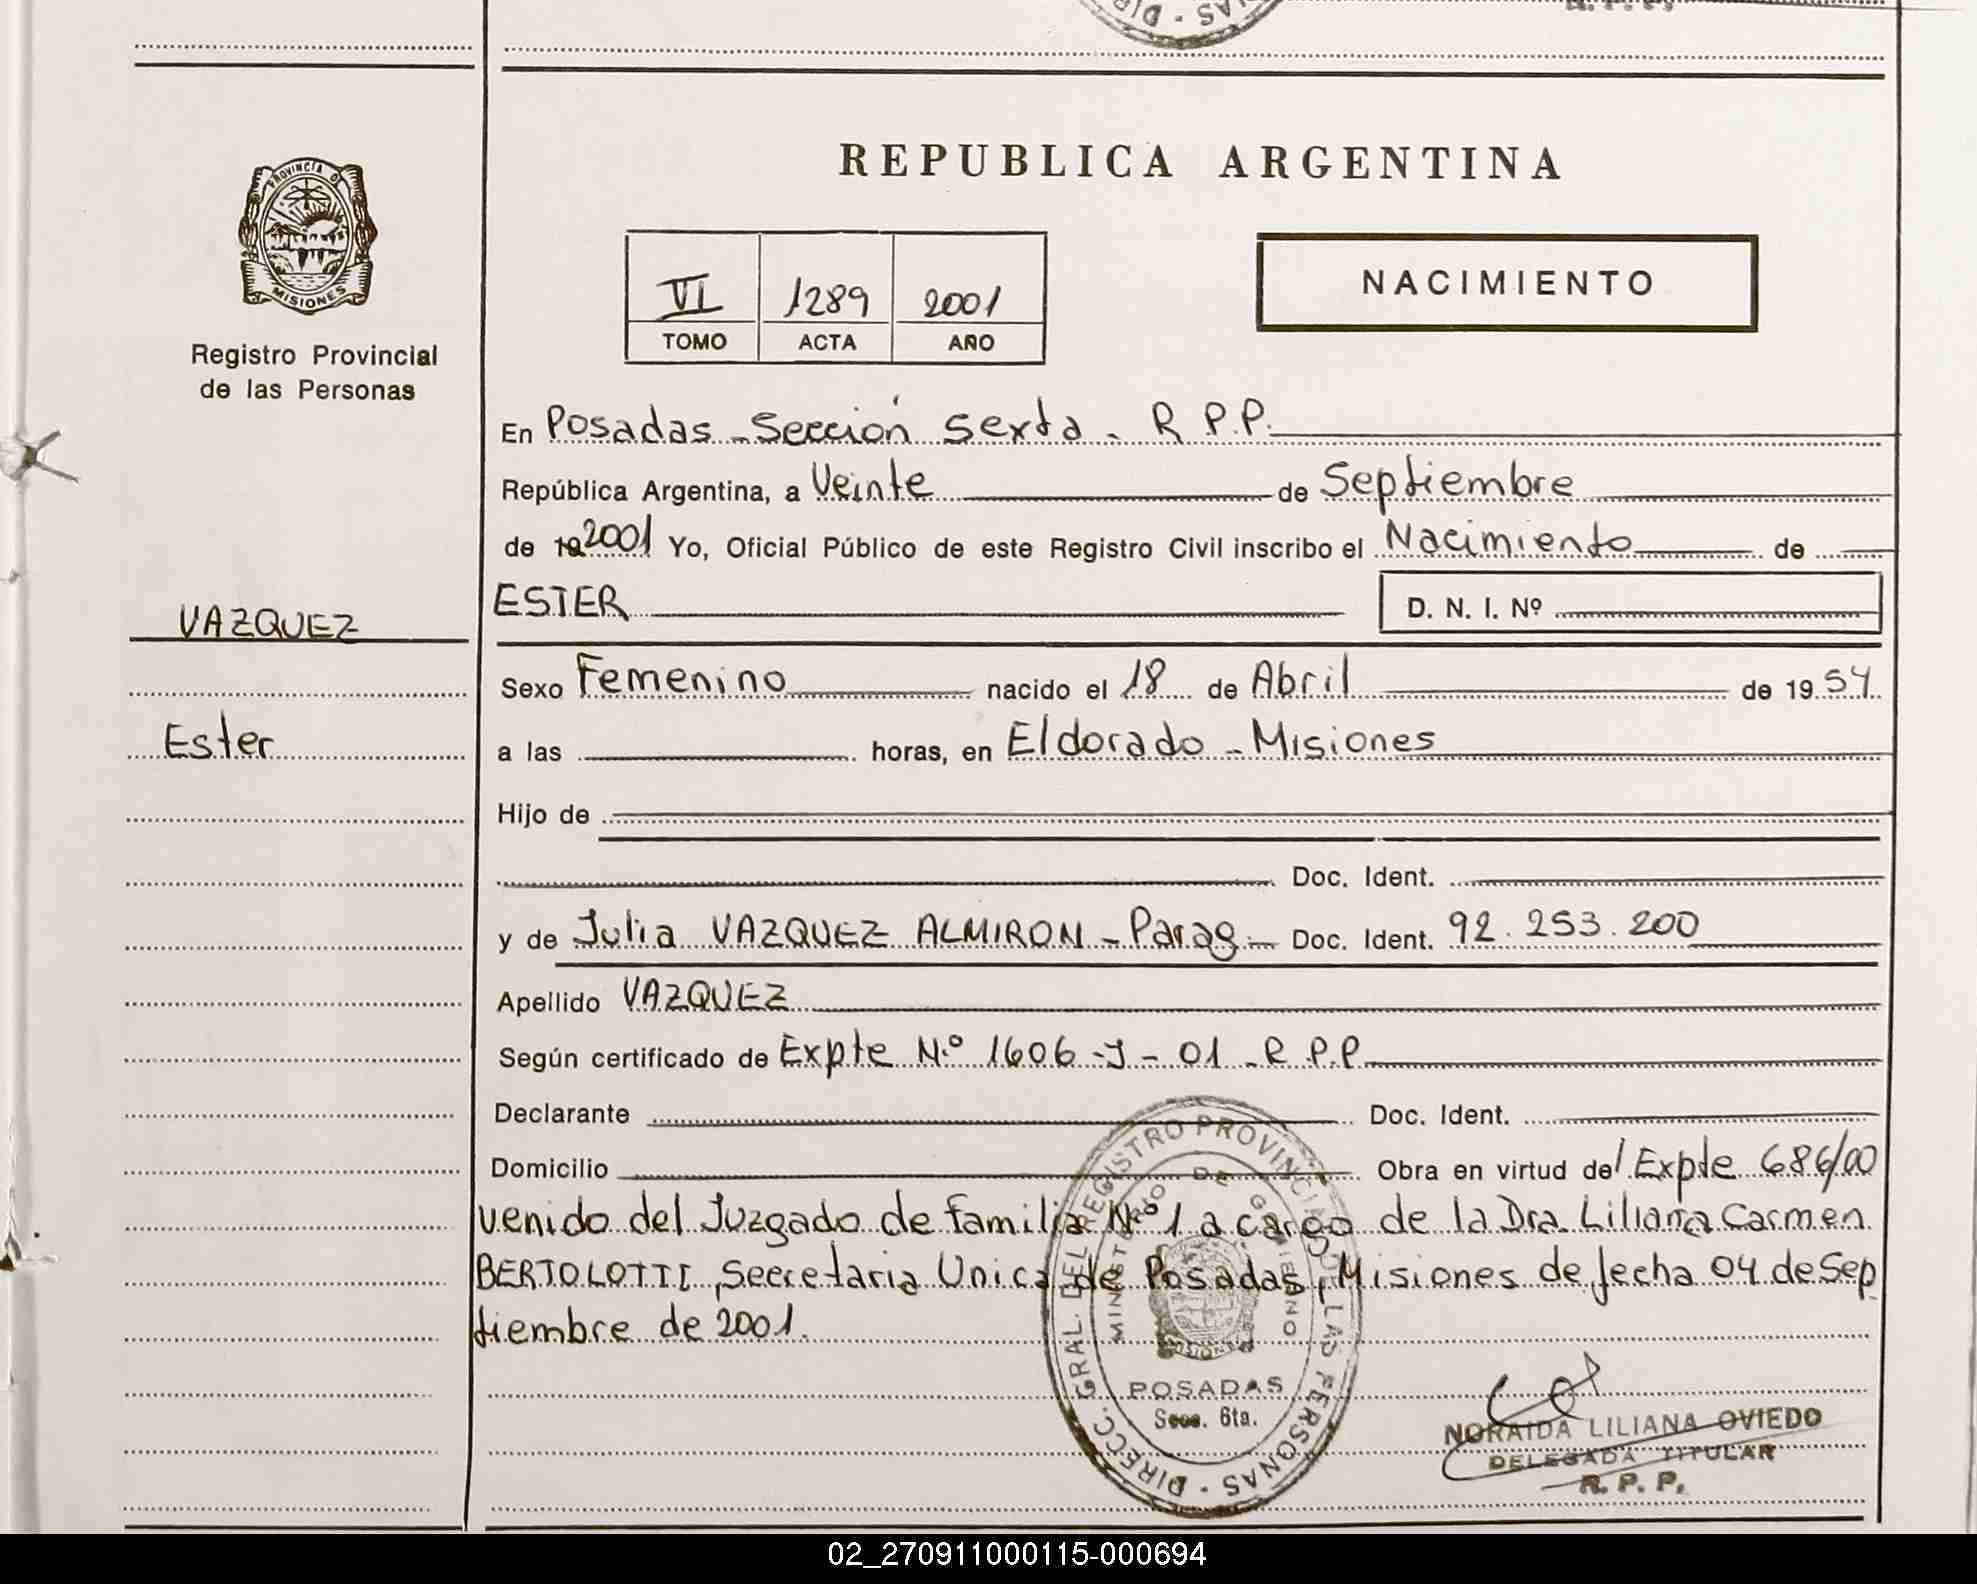 PROVINCIA DE
MISIONES
Registro Provincial
de las Personas
VAZQUEZ
Ester
REPUBLICA ARGENTINA
VI 1289 2001
TOMO ACTA AÑO
NACIMIENTO
En Posadas - Sección Sexta - R P.P.
República Argentina, a Veinte de Septiembre
de 19 2001 Yo, Oficial Público de este Registro Civil inscribo el Nacimiento de
ESTER D. N. I. Nº
Sexo Femenino nacido el 18 de Abril de 19 54
a las horas, en Eldorado - Misiones
Hijo de
Doc. Ident.
y de Julia VAZQUEZ ALMIRON - Parag - Doc. Ident. 92.253.200
Apellido VAZQUEZ
Según certificado de Expte N.º 1606 - J - 01 - R P.P.
Declarante Doc. Ident.
Domicilio Obra en virtud del Expte 686/00
venido del Juzgado de familia Nº 1 a cargo de la Dra. Liliana Carmen
BERTOLOTTI, Secretaria Unica de Posadas, Misiones de fecha 04 de Sep
tiembre de 2001.
DIRECC. GRAL. DEL REGISTRO PROVINCIAL DE LAS PERSONAS
MINISTERIO DE GOBIERNO
MISIONES
POSADAS
Secc. 6ta.
NORAIDA LILIANA OVIEDO
DELEGADA TITULAR
R. P. P.
02_270911000115-000694